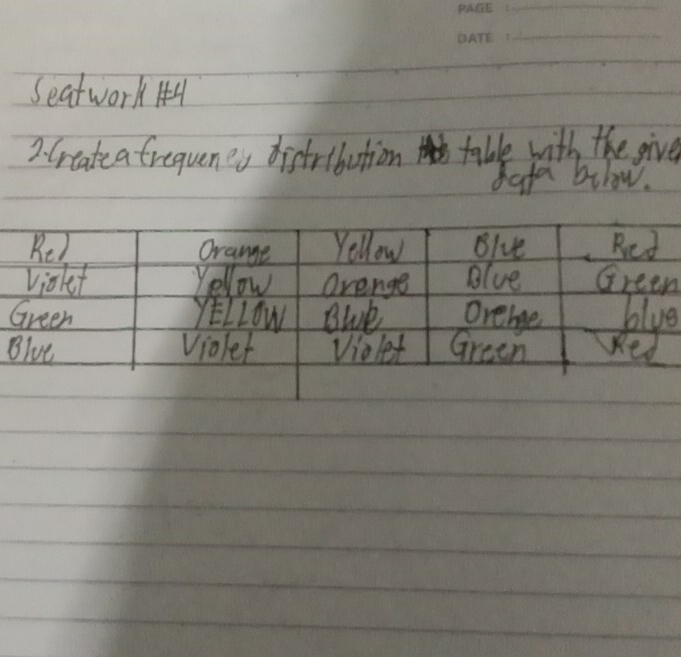 PAGE :
DATE :
Seatwork #4
2. Create a frequency distribution table with the given
data below.
Red Orange Yellow Blue Red
Violet Yellow Orenge Blue Green
Green YELLOW Blue Orenge blue
Blue Violet Violet Green Red